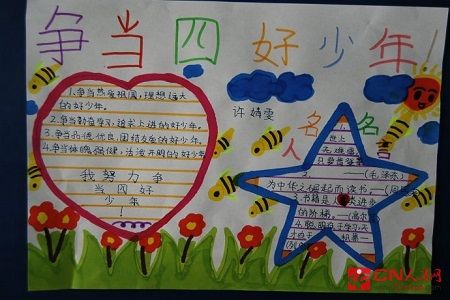 争当四好少年!
许婧雯
1.争当热爱祖国,理想远大
的好少年。
2.争当勤奋学习,追求上进的好少年。
3.争当品德优良,团结友爱的好少年。
4.争当体魄强健,活泼开朗的好少年
我努力争
当四好
少年
!
名人名言
1.世上
无难事
只要肯登攀
——(毛泽东)
2.
为中华之崛起而读书——(周
3.书籍是人类进步
的阶梯。——(高尔
4.聪明出于学习,天
才
CN人网